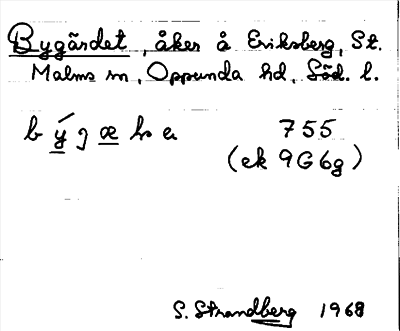 Bygärdet, åker å Eriksberg, St.
Malms sn, Oppunda hd, Söd. l.
755
(ek 9G6g)
S. Strandberg 1968